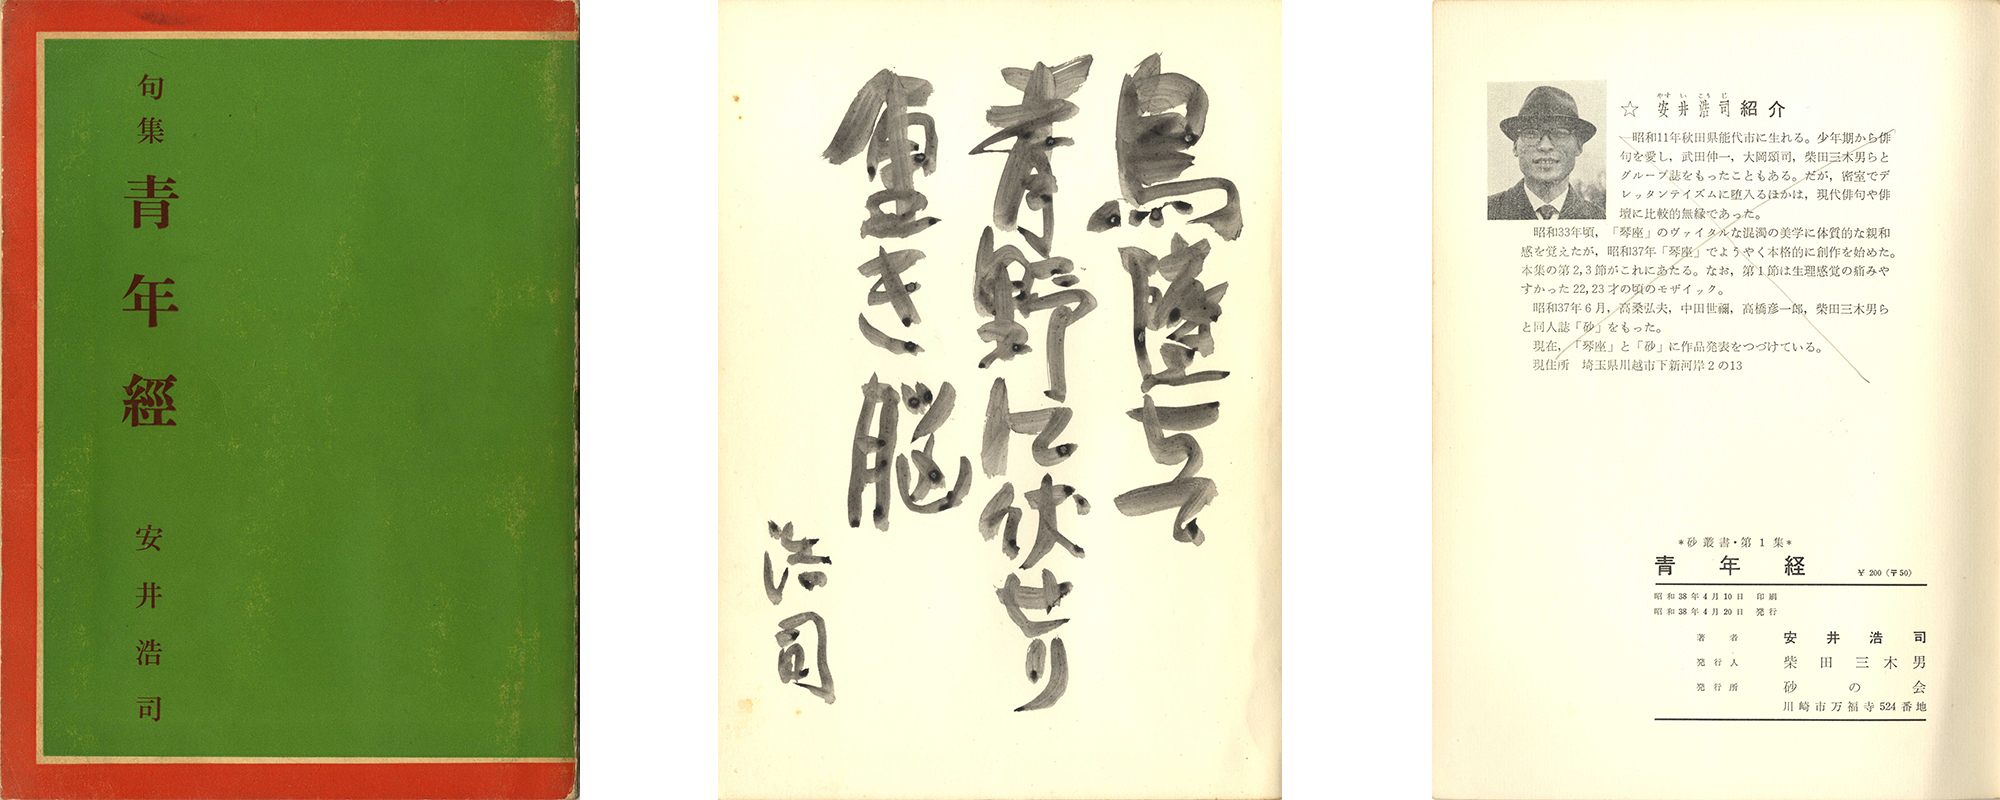 句集 青年經 安井浩司
鳥墜ちて
青野に伏せり
重き脳
浩司
やす い こう じ
☆ 安井浩司紹介
昭和11年秋田県能代市に生れる。少年期から俳
句を愛し，武田伸一，大岡頌司，柴田三木男らと
グループ誌をもったこともある。だが，密室でデ
レッタンテイズムに堕入るほかは，現代俳句や俳
壇に比較的無縁であった。
昭和33年頃，「琴座」のヴァイタルな混濁の美学に体質的な親和
感を覚えたが，昭和37年「琴座」でようやく本格的に創作を始めた。
本集の第2,3節がこれにあたる。なお，第1節は生理感覚の痛みや
すかった22,23才の頃のモザイック。
昭和37年6月，高桑弘夫，中田世禰，高橋彦一郎，柴田三木男ら
と同人誌「砂」をもった。
現在，「琴座」と「砂」に作品発表をつづけている。
現住所　埼玉県川越市下新河岸2の13
＊砂叢書・第1集＊
青年経 ￥200（〒50）
昭和38年4月10日　印刷
昭和38年4月20日　発行
著者 安井浩司
発行人 柴田三木男
発行所 砂の会
川崎市万福寺524番地